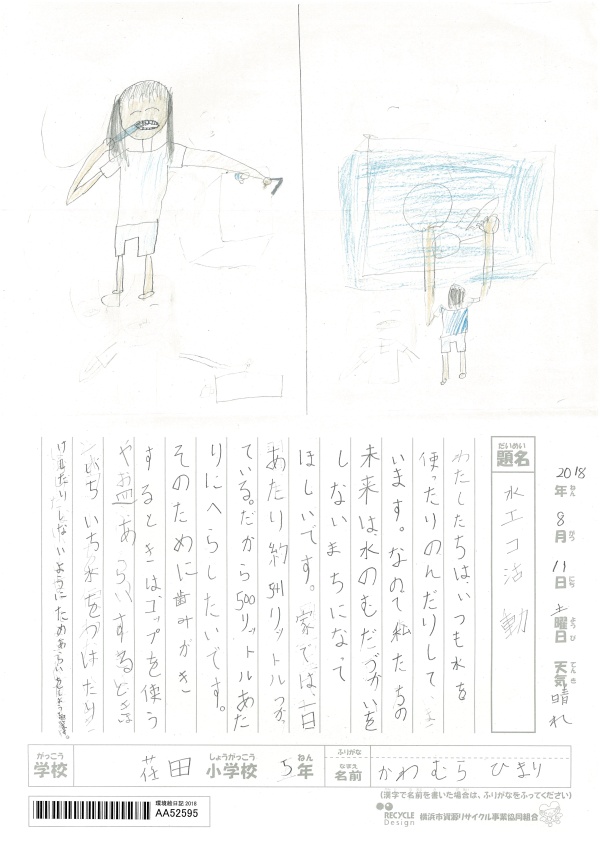 2018年8月11日土曜日 天気晴れ
ねん がつ にち ようび てんき
だいめい
題名
水エコ活動
わたしたちは、いつも水を
使ったりのんだりして、
います。なので私たちの
未来は、水のむだづかいを
しないまちになって
ほしいです。家では、一日
あたり約541リットルつかっ
ている。だから500リットルあた
りにへらしたいです。
そのために歯みがき
するときは、コップを使う
やお皿あらいするときは
いちいち水をつけたり
けしたりしないようにためあらいをしよう
がっこう
学校
荏田
しょうがっこう
小学校
5
ねん
年
ふりがな
なまえ
名前
かわむら ひまり
(漢字で名前を書いた場合は、ふりがなをふってください)
環境絵日記2018
AA52595
RECYCLE Design
横浜市資源リサイクル事業協同組合